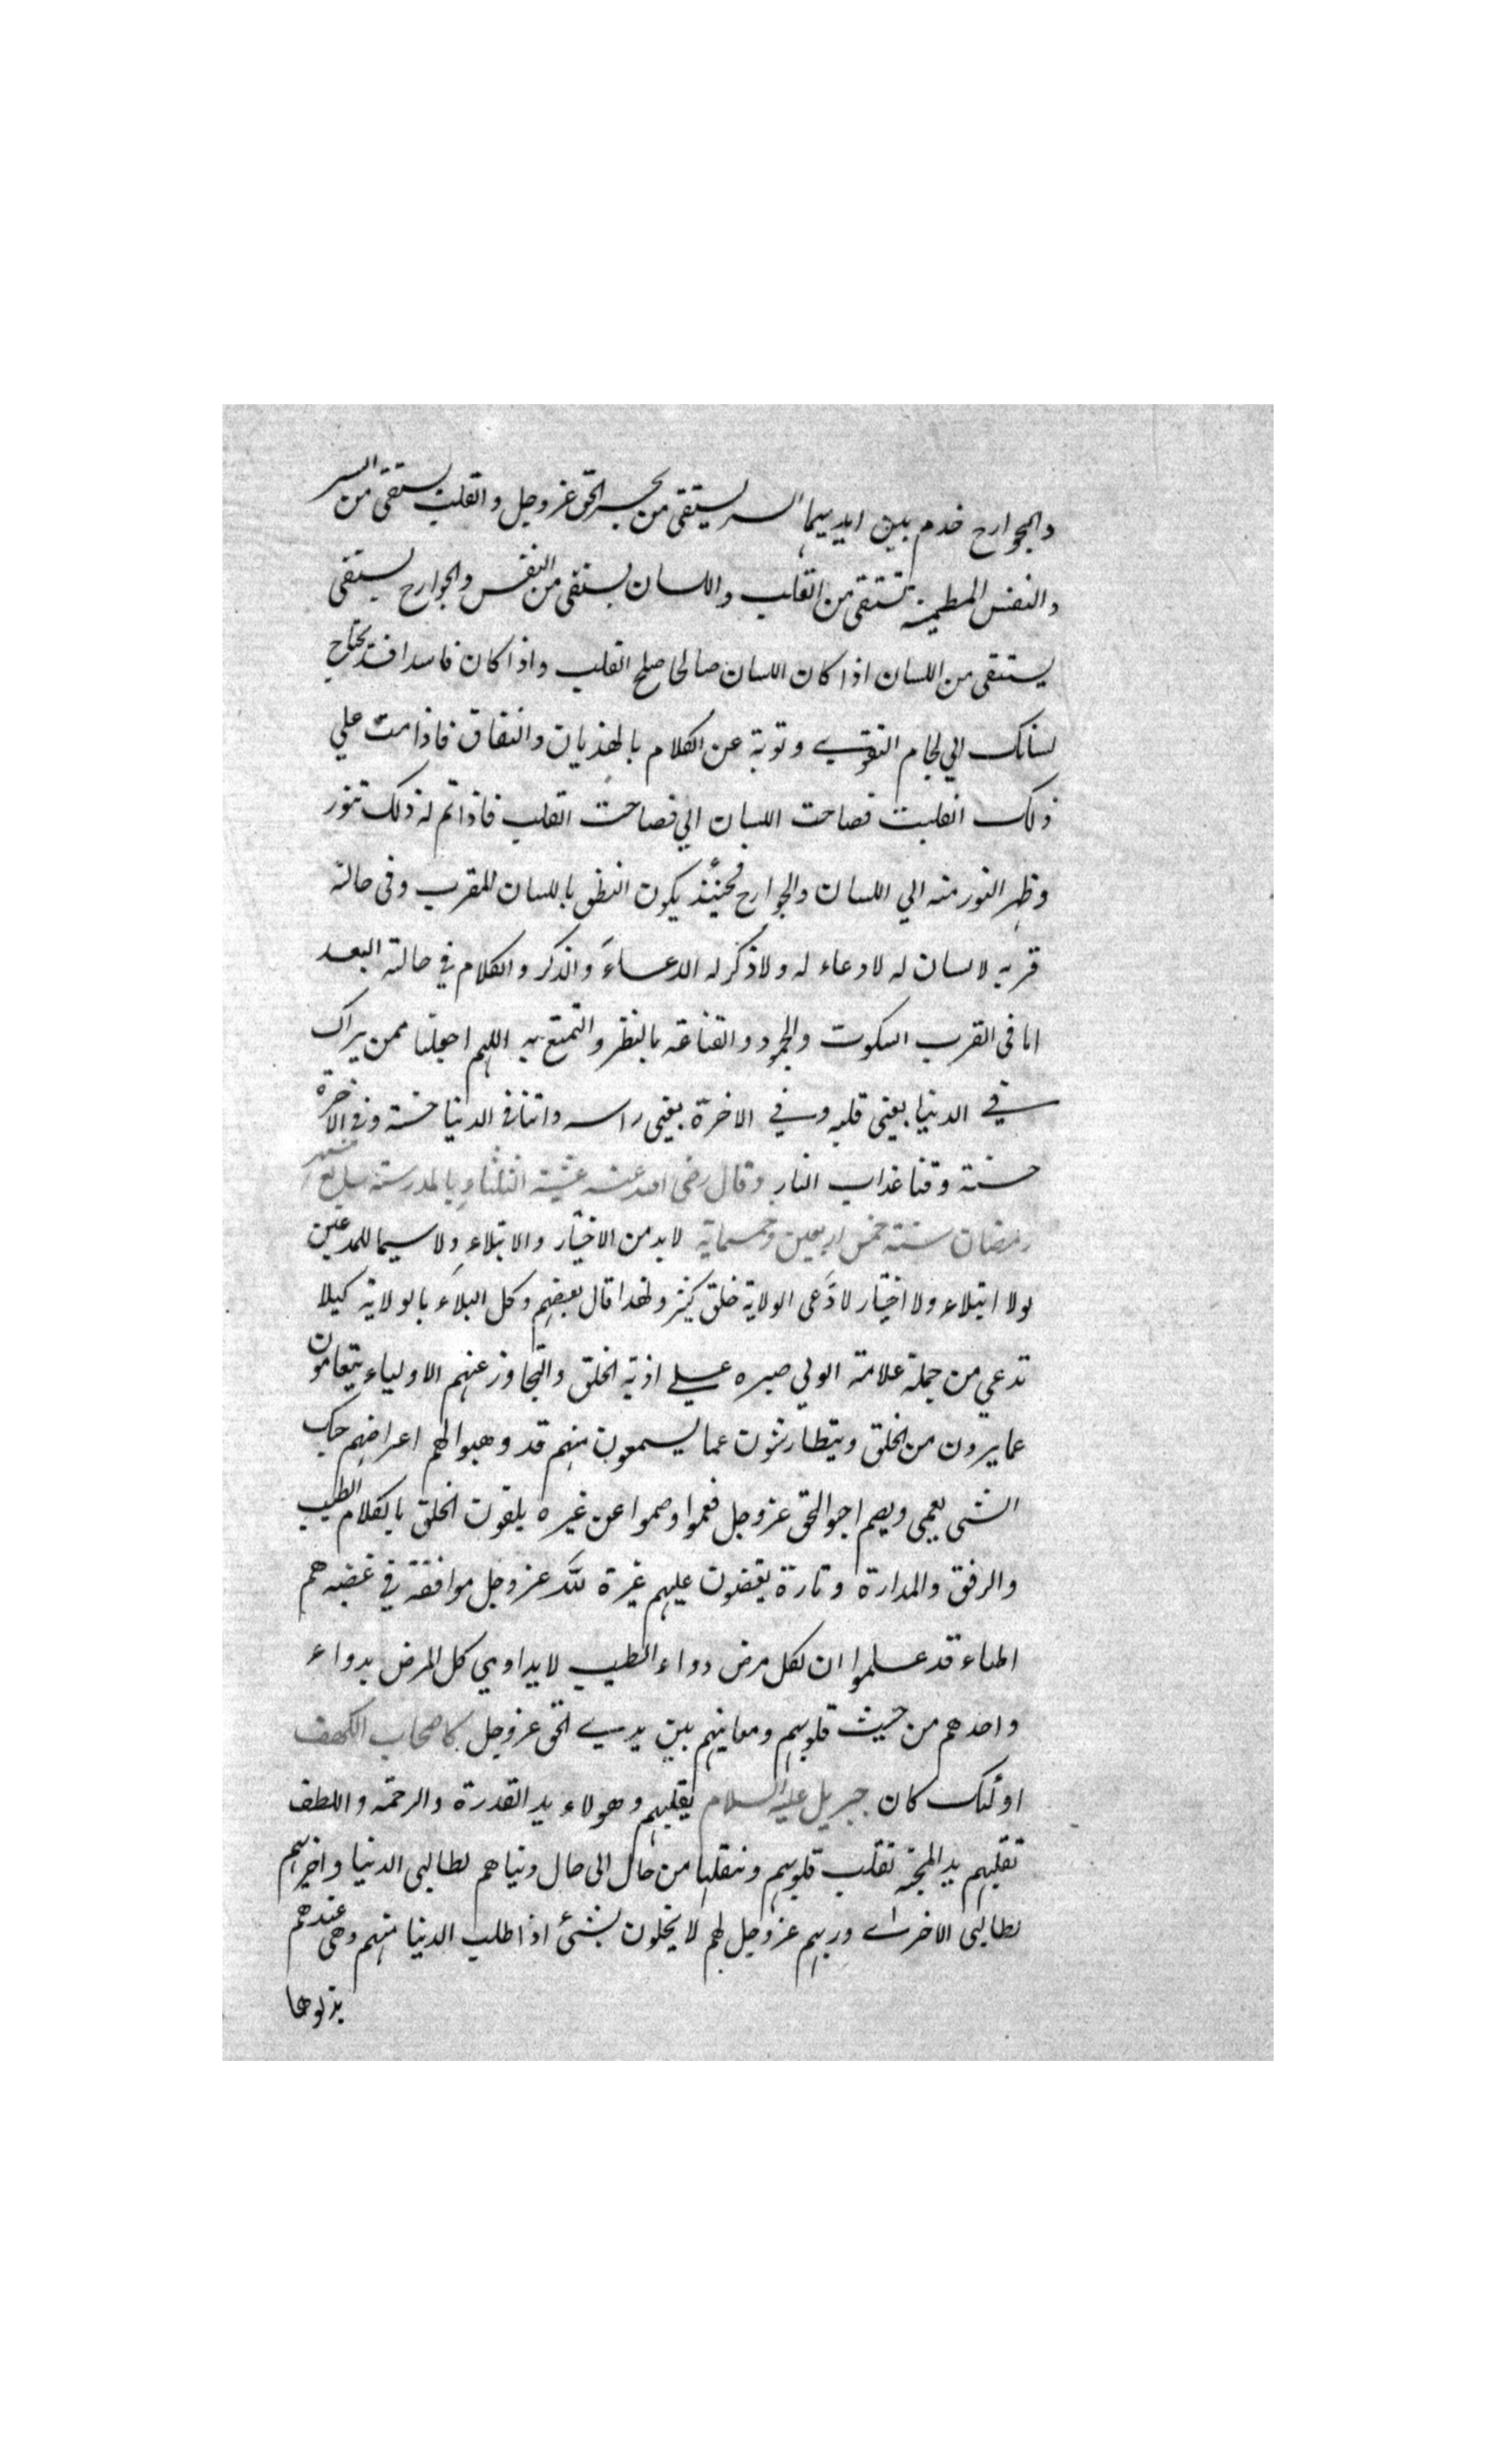 والجوارح خدم بين ايديهما السر يستقى من بحر الحق عز وجل والقلب يستقى من السر
والنفس المطمئنة تستقى من القلب واللسان يستقى من النفس والجوارح يستقى
يستقى من اللسان اذا كان اللسان صالحا صلح القلب واذا كان فاسدا فسد يحتاج
لسانك الي لجام التقوي وتوبة عن الكلام بالهذيان والنفاق فاذا دمت علي
ذلك انقلبت فصاحت اللسان الي فصاحت القلب فاذا تم له ذلك تنور
وظهر النور منه الي اللسان والجوارح فحينئذ يكون النطق باللسان للمقرب وفى حالة
قربه لا لسان له لا دعاء له ولا ذكر له الدعاء والذكر والكلام في حالة البعد
اما فى القرب السكوت والجمود والقناعة بالنظر والتمتع به اللهم اجعلنا ممن يراك
في الدنيا بعينى قلبه وفي الاخرة بعينى راسه واتنا فى الدنيا حسنة وفى الاخرة
حسنة وقنا عذاب النار وقال رضى الله عنه عشية الثلثاء بالمدرسة سابع شهر
رمضان سنة خمس اربعين وخمسماية لابد من الاختبار والابتلاء ولا سيما للمدعين
لولا ابتلاء ولا اختبار لادّعى الولاية خلق كثير ولهذا قال بعضهم وكل البلاء بالولاية كيلا
تدعي من جملة علامة الولي صبره علي اذية الخلق والتجاوز عنهم الاولياء يتعامون
عما يرون من الخلق ويتطارشون عما يسمعون منهم قد وهبوا لهم اعراضهم حبك
الشى يعمى ويصم احبوا الحق عز وجل فعموا وصموا عن غيره يلقون الخلق بالكلام الطيب
والرفق والمدارة وتارة يغضبون عليهم غيرة لله عز وجل موافقة في غضبه هم
اطباء قد علموا ان لكل مرض دواء الطبيب لا يداوي كل المرض بدواء
واحد هم من حيث قلوبهم ومعانيهم بين يدي الحق عز وجل كاصحاب الكهف
اولئك كان جبريل عليه السلام يقلبهم وهولاء يد القدرة والرحمة واللطف
تقلبهم يد المحبة تقلب قلوبهم وتنقلها من حال الى حال دنياهم لطالبى الدنيا واخراهم
لطالبى الاخراي وربهم عز وجل لهم لا يبخلون بشئ اذا طلب الدنيا منهم وهى عندهم
بذلوها